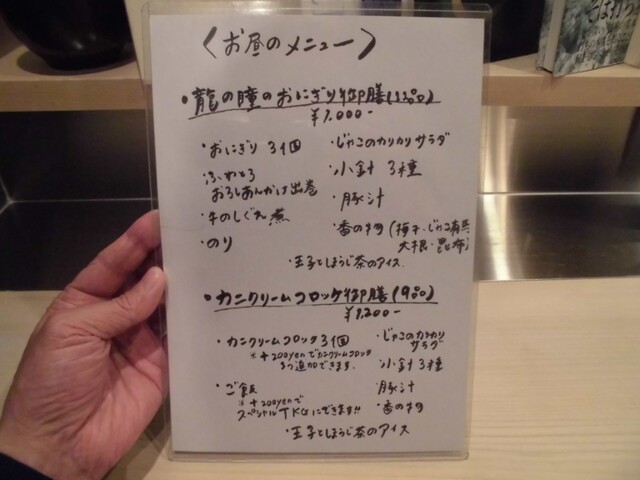 〈お昼のメニュー〉
・龍の瞳のおにぎり御膳(12品)
¥1,000-
・おにぎり 3個
・じゃこのカリカリサラダ
・ふわとろ
おろしあんかけ出巻
・小針 3種
・豚汁
・牛のしぐれ煮
・香の物(梅干、じゃこ有馬
大根・昆布)
・のり
・玉子とほうじ茶のアイス
・カニクリームコロッケ御膳(9品)
¥1,200-
・カニクリームコロッケ3個
※+200yenでカニクリームコロッケ
1つ追加できます。
・じゃこのカリカリ
サラダ
小針3種
・ご飯
※+200yenで
スペシャルTKGにできます!!
豚汁
・香の物
・玉子とほうじ茶のアイス
そば打ち